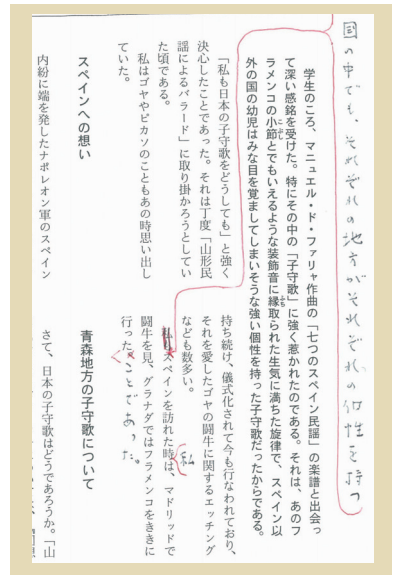 国の中でも、それぞれの地方がそれぞれの個性を持つ
学生のころ、マニュエル・ド・ファリャ作曲の「七つのスペイン民謡」の楽譜と出会っ
て深い感銘を受けた。特にその中の「子守歌」に強く惹かれたのである。それは、あのフ
こぶし
ふち
ラメンコの小節とでもいえるような装飾音に縁取られた生気に満ちた旋律で、スペイン以
外の国の幼児はみな目を覚ましてしまいそうな強い個性を持った子守歌だったからである。
「私も日本の子守歌をどうしても」と強く
決心したことであった。それは丁度「山形民
謡によるバラード」に取り掛かろうとしてい
た頃である。
私はゴヤやピカソのこともあの時思い出し
ていた。
スペインへの想い
内紛に端を発したナポレオン軍のスペイン
持ち続け、儀式化されて今も行なわれており、
それを愛したゴヤの闘牛に関するエッチング
なども数多い。
私
スペインを訪れた時は、マドリッドで
闘牛を見、グラナダではフラメンコをききに
行った。
ことであった。
青森地方の子守歌について
さて、日本の子守歌はどうであろうか。「山